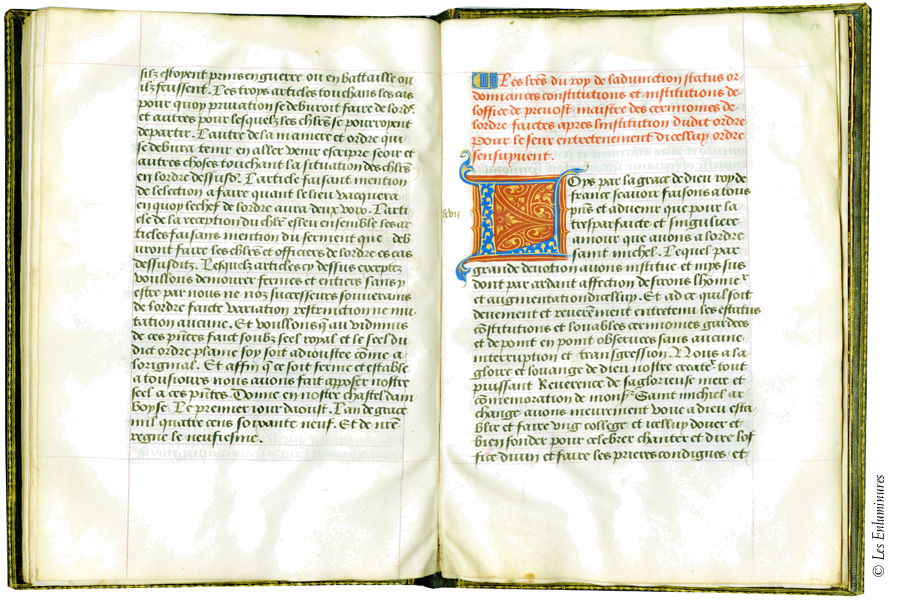 silz estoyent prins en guerre ou en battaille ou
ilz feussent. Les troys articles touchans les cas
pour quoy privation se debvroit faire de lordre
et autres pour lesquelz les chlrs se pourroyent
departir. L'autre de la maniere et ordre qui
se debvra tenir en aller venir escripre seoir et
autres choses touchant la situation des chlrs
en lordre dessusd. L'article faisant mention
de lelection a faire quant le lieu vacquera
en quoy le chef de lordre aura deux voix. L'arti-
cle de la reception du chlr esleu ensemble les ar
ticles faisans mention du serment que deb
vront faire les chlrs et officiers de lordre es cas
dessusditz. Lesquelz articles cy dessus exceptez
voullons demourer fermes et entiers sans y
estre par nous ne noz successeurs souverains
de lordre faicte variation restrinction ne mu
tation aucune. Et voullons q au vidimus
de ces pntes faict soubz seel royal et le seel du
dict ordre plaine foy soit adioustee come a
loriginal. Et affin q ce soit ferme et estable
a tousiours nous avons fait apposer nostre
seel a ces pntes. Donne en nostre chastel dam
boyse. Le premier iour daoust. L'an de grace
mil quatre cens soixante neuf. Et de nre
regne le neufiesme.
Les lres du roy de ladiunction status or-
donnances constitutions et institutions de
loffice de prevost maistre des cerimonies de
lordre faictes apres linstitution dudit ordre
Pour le seur entretenement dicelluy ordre
sensuyvent.
Loys par la grace de dieu roy de
france scavoir faisons a tous
pns et advenir que pour la
tresparfaicte et singuliere
amour que avons a lordre
saint michel. Lequel par
grande devotion avons institue et mys sus
dont par ardant affection desirons lhonneur
et augmentation dicelluy. Et ad ce quil soit
deuement et reveremment entretenu les status
constitutions et louables cerimonies gardees
et de point en point observees sans aucune
interruption et transgression. Nous a la
gloire et louange de dieu nostre createur tout
puissant Reverence de sa glorieuse mere et
comemoration de monsr Saint michiel ar
change avons meurement voue a dieu esta
blir et faire ung college et icelluy doter et
bien fonder pour celebrer chanter et dire lof
fice divin et faire les prieres condignes et
© Les Enluminures